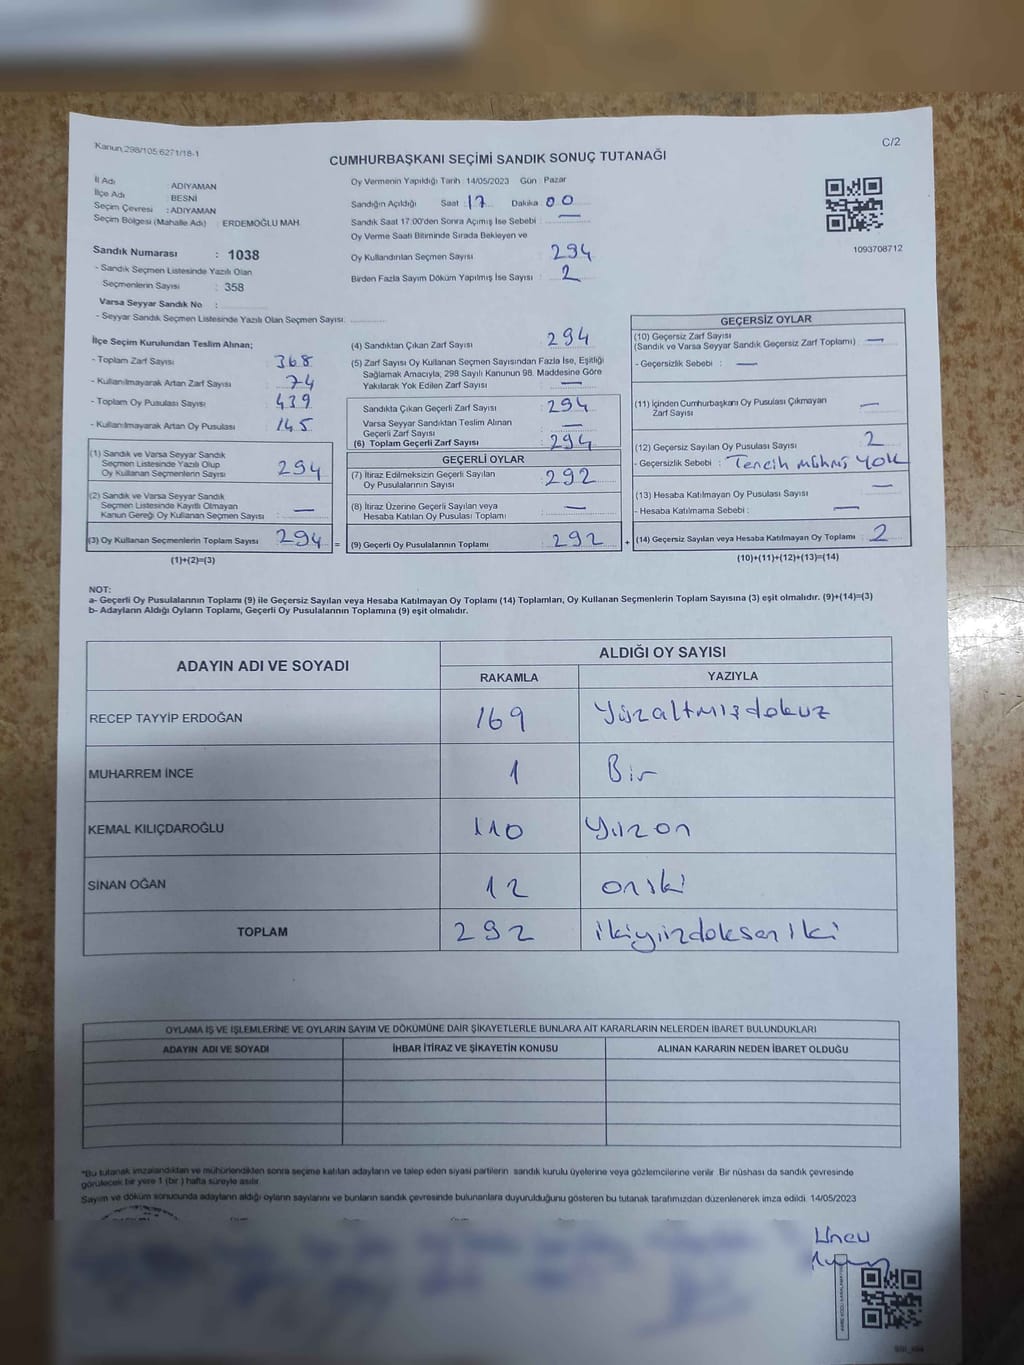 Kanun,298/105,6271/18-1
C/2
CUMHURBAŞKANI SEÇİMİ SANDIK SONUÇ TUTANAĞI
İl Adı : ADIYAMAN
İlçe Adı : BESNİ
Seçim Çevresi : ADIYAMAN
Seçim Bölgesi (Mahalle Adı) : ERDEMOĞLU MAH.
Sandık Numarası : 1038
- Sandık Seçmen Listesinde Yazılı Olan
Seçmenlerin Sayısı : 358
Varsa Seyyar Sandık No :
- Seyyar Sandık Seçmen Listesinde Yazılı Olan Seçmen Sayısı:
Oy Vermenin Yapıldığı Tarih : 14/05/2023 Gün : Pazar
Sandığın Açıldığı Saat : 17 Dakika : 00
Sandık Saat 17:00'den Sonra Açımış İse Sebebi : —
Oy Verme Saati Bitiminde Sırada Bekleyen ve
Oy Kullandırılan Seçmen Sayısı : 294
Birden Fazla Sayım Döküm Yapılmış İse Sayısı : 2
1093708712
İlçe Seçim Kurulundan Teslim Alınan;
- Toplam Zarf Sayısı : 368
- Kullanılmayarak Artan Zarf Sayısı : 74
- Toplam Oy Pusulası Sayısı : 439
- Kullanılmayarak Artan Oy Pusulası : 145
(1) Sandık ve Varsa Seyyar Sandık
Seçmen Listesinde Yazılı Olup
Oy Kullanan Seçmenlerin Sayısı : 294
(2) Sandık ve Varsa Seyyar Sandık
Seçmen Listesinde Kayıtlı Olmayan
Kanun Gereği Oy Kullanan Seçmen Sayısı : —
(3) Oy Kullanan Seçmenlerin Toplam Sayısı : 294 =
(1)+(2)=(3)
(4) Sandıktan Çıkan Zarf Sayısı : 294
(5) Zarf Sayısı Oy Kullanan Seçmen Sayısından Fazla İse, Eşitliği
Sağlamak Amacıyla, 298 Sayılı Kanunun 98. Maddesine Göre
Yakılarak Yok Edilen Zarf Sayısı : —
Sandıkta Çıkan Geçerli Zarf Sayısı : 294
Varsa Seyyar Sandıktan Teslim Alınan
Geçerli Zarf Sayısı : —
(6) Toplam Geçerli Zarf Sayısı : 294
GEÇERLİ OYLAR
(7) İtiraz Edilmeksizin Geçerli Sayılan
Oy Pusulalarının Sayısı : 292
(8) İtiraz Üzerine Geçerli Sayılan veya
Hesaba Katılan Oy Pusulası Toplamı : —
(9) Geçerli Oy Pusulalarının Toplamı : 292 +
GEÇERSİZ OYLAR
(10) Geçersiz Zarf Sayısı
(Sandık ve Varsa Seyyar Sandık Geçersiz Zarf Toplamı) : —
- Geçersizlik Sebebi : —
(11) İçinden Cumhurbaşkanı Oy Pusulası Çıkmayan
Zarf Sayısı : —
(12) Geçersiz Sayılan Oy Pusulası Sayısı : 2
- Geçersizlik Sebebi : Tercih mührü YOK
(13) Hesaba Katılmayan Oy Pusulası Sayısı : —
- Hesaba Katılmama Sebebi : —
(14) Geçersiz Sayılan veya Hesaba Katılmayan Oy Toplamı : 2
(10)+(11)+(12)+(13)=(14)
NOT:
a- Geçerli Oy Pusulalarının Toplamı (9) ile Geçersiz Sayılan veya Hesaba Katılmayan Oy Toplamı (14) Toplamları, Oy Kullanan Seçmenlerin Toplam Sayısına (3) eşit olmalıdır. (9)+(14)=(3)
b- Adayların Aldığı Oyların Toplamı, Geçerli Oy Pusulalarının Toplamına (9) eşit olmalıdır.
ADAYIN ADI VE SOYADI ALDIĞI OY SAYISI
RAKAMLA YAZIYLA
RECEP TAYYİP ERDOĞAN 169 Yüzaltmışdokuz
MUHARREM İNCE 1 Bir
KEMAL KILIÇDAROĞLU 110 Yüzon
SİNAN OĞAN 12 oniki
TOPLAM 292 ikiyüzdoksaniki
OYLAMA İŞ VE İŞLEMLERİNE VE OYLARIN SAYIM VE DÖKÜMÜNE DAİR ŞİKAYETLERLE BUNLARA AİT KARARLARIN NELERDEN İBARET BULUNDUKLARI
ADAYIN ADI VE SOYADI İHBAR İTİRAZ VE ŞİKAYETİN KONUSU ALINAN KARARIN NEDEN İBARET OLDUĞU
*Bu tutanak imzalandıktan ve mühürlendikten sonra seçime katılan adayların ve talep eden siyasi partilerin sandık kurulu üyelerine veya gözlemcilerine verilir. Bir nüshası da sandık çevresinde
görülecek bir yere 1 (bir) hafta süreyle asılır.
Sayım ve döküm sonucunda adayların aldığı oyların sayılarını ve bunların sandık çevresinde bulunanlara duyurulduğunu gösteren bu tutanak tarafımızdan düzenlenerek imza edildi. 14/05/2023